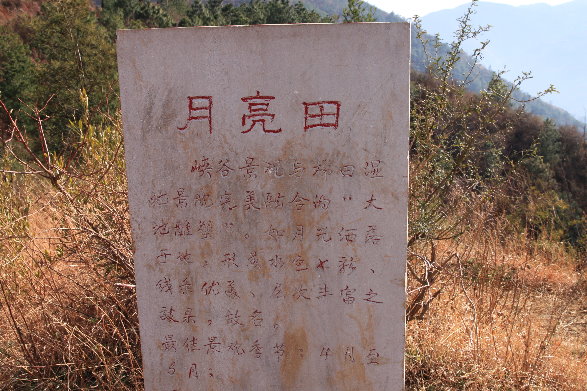 月亮田
峡谷景观与梯田湿
地景观完美融合的“大
地雕塑”。如月光洒落
于此，形美水色
线条优美、层次丰富之
效果，故名。
最佳景观季节：4月至
5月。